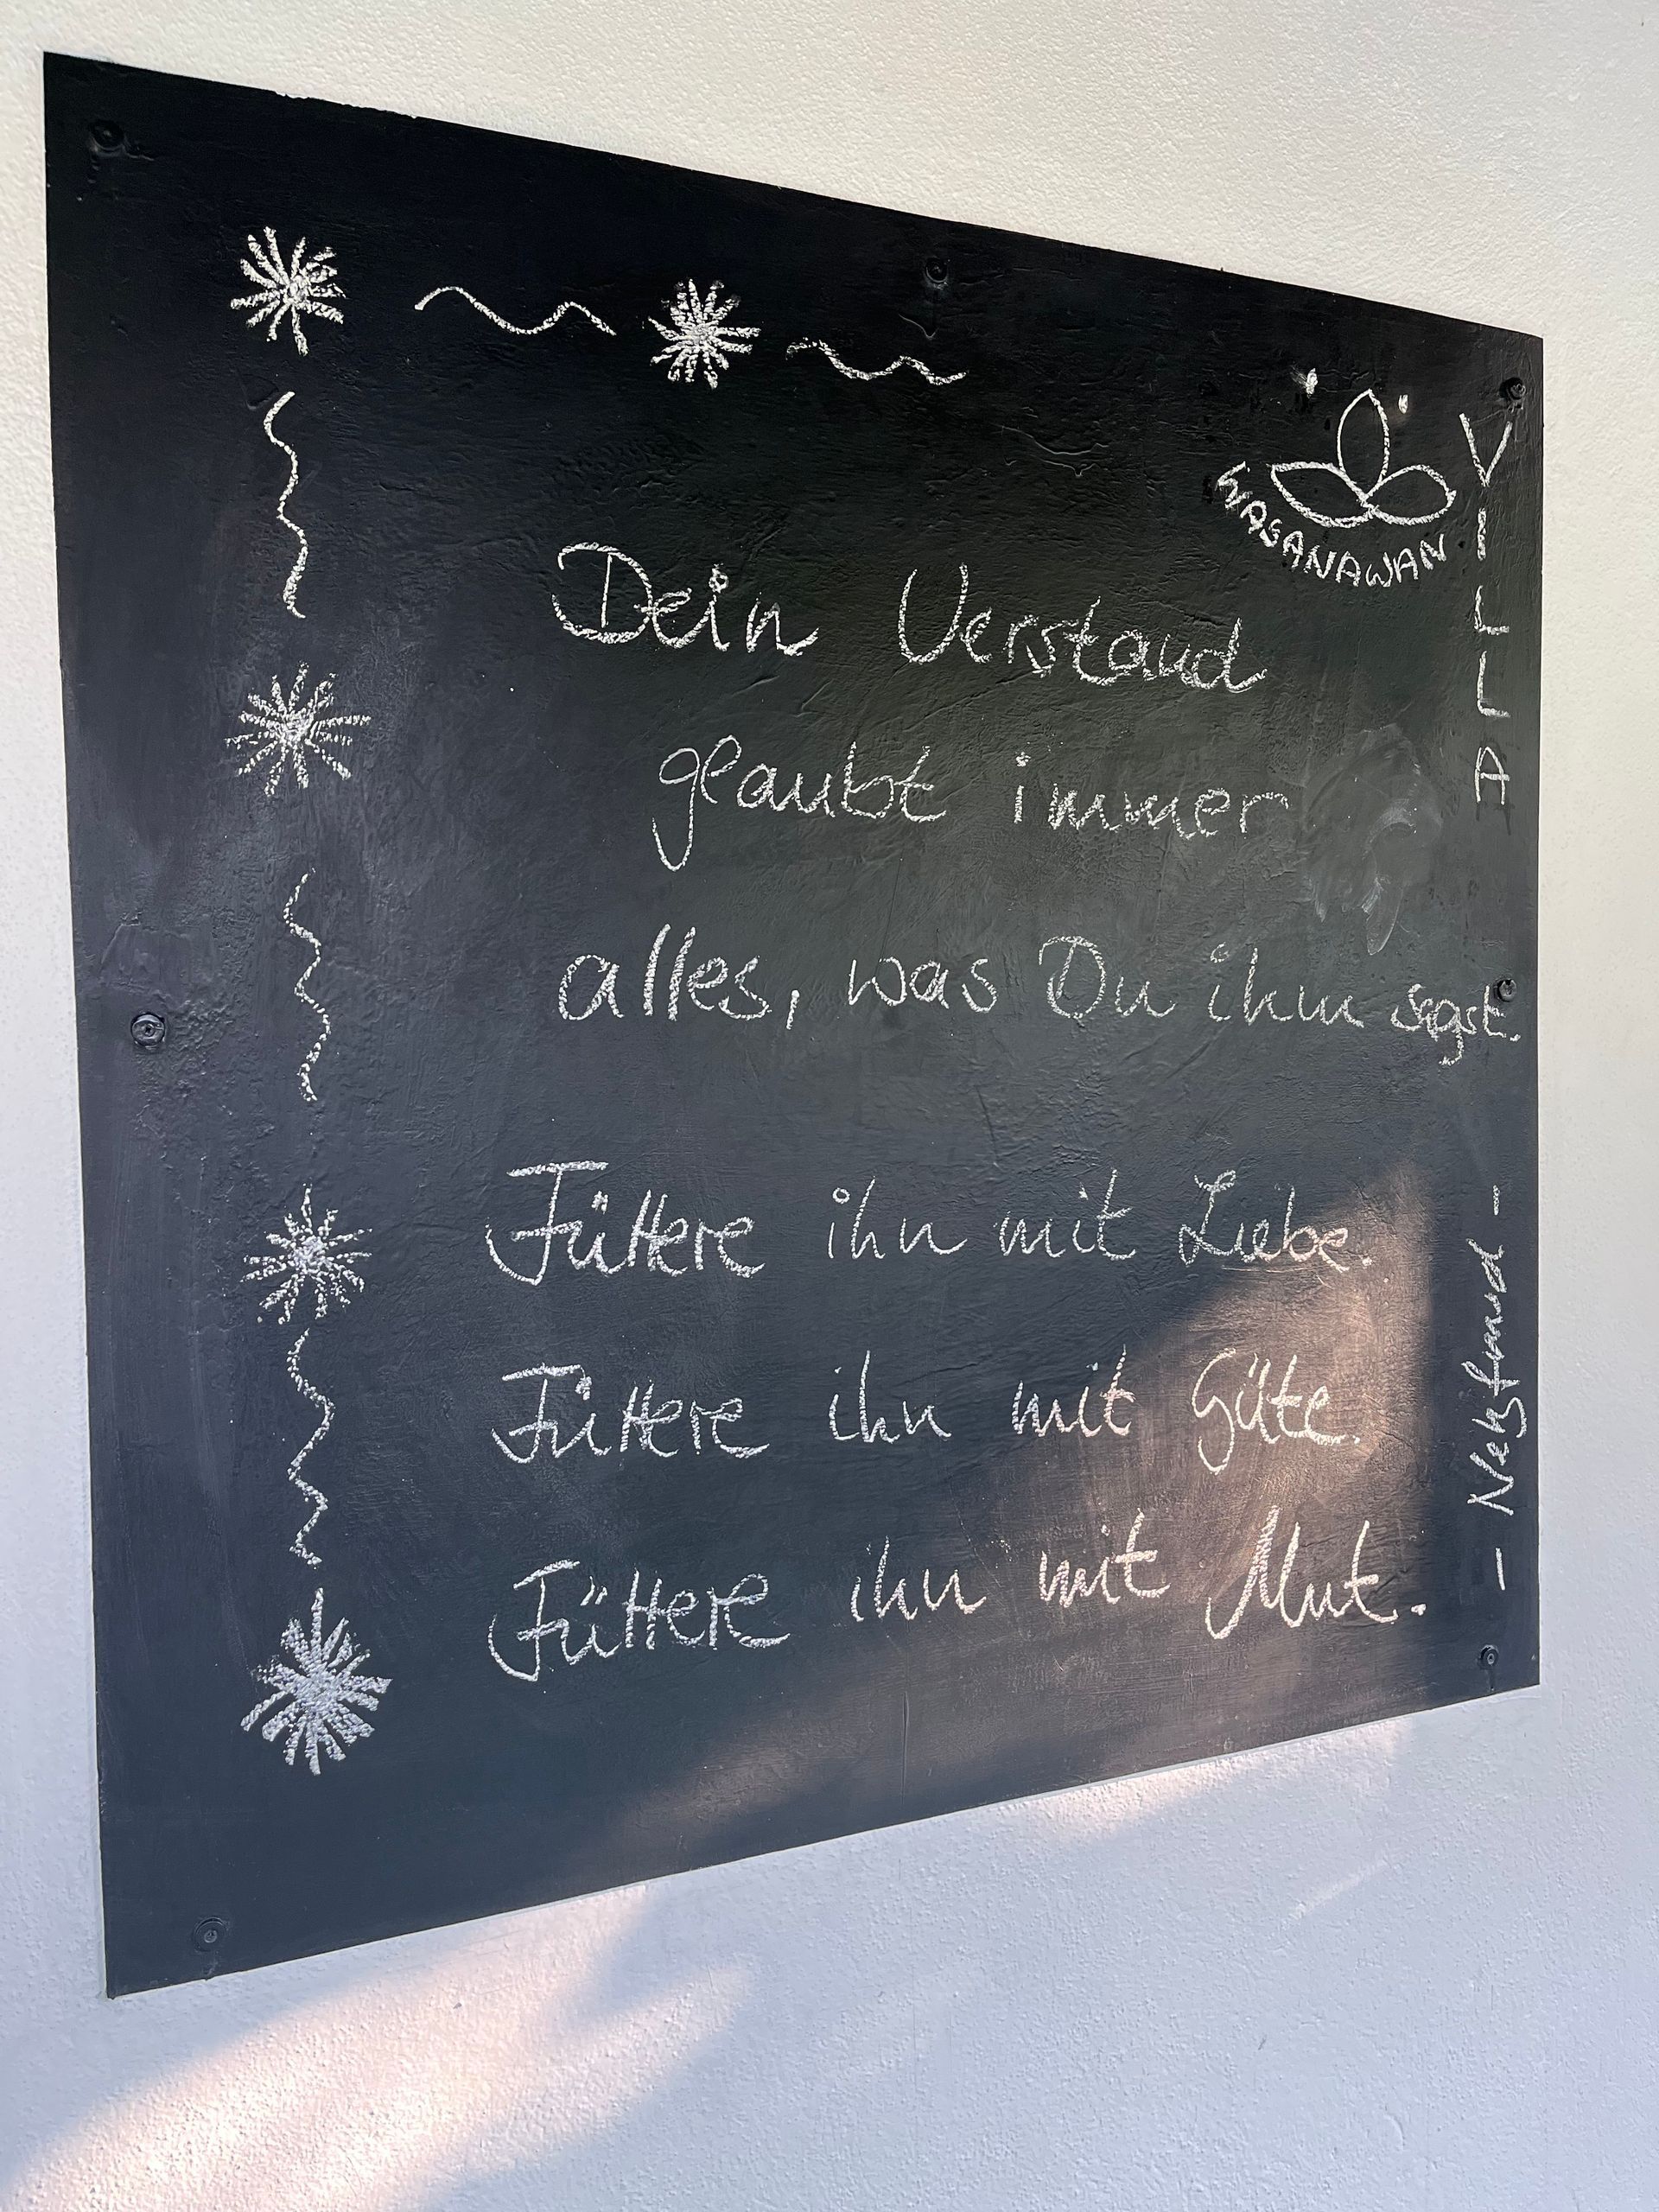 WASANAWAN
VILLA
Dein Verstand
glaubt immer
alles, was Du ihm sagst.
Füttere ihn mit Liebe.
Füttere ihn mit Güte.
Füttere ihn mit Mut.
- Netzfund -